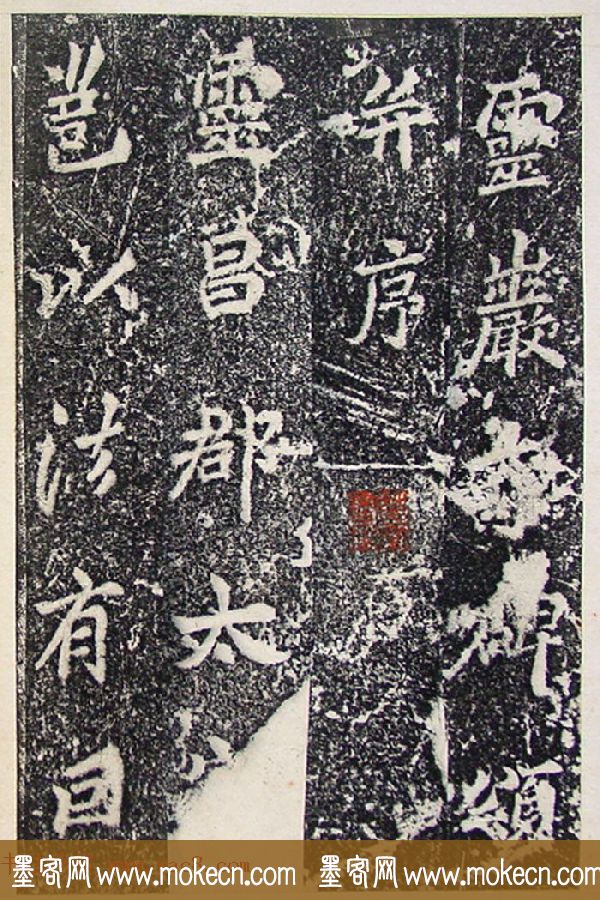 靈巖寺碑頌
并序
靈昌郡太
邕以法有因
墨客网 www.mokecn.com 墨客网 www.mokecn.com